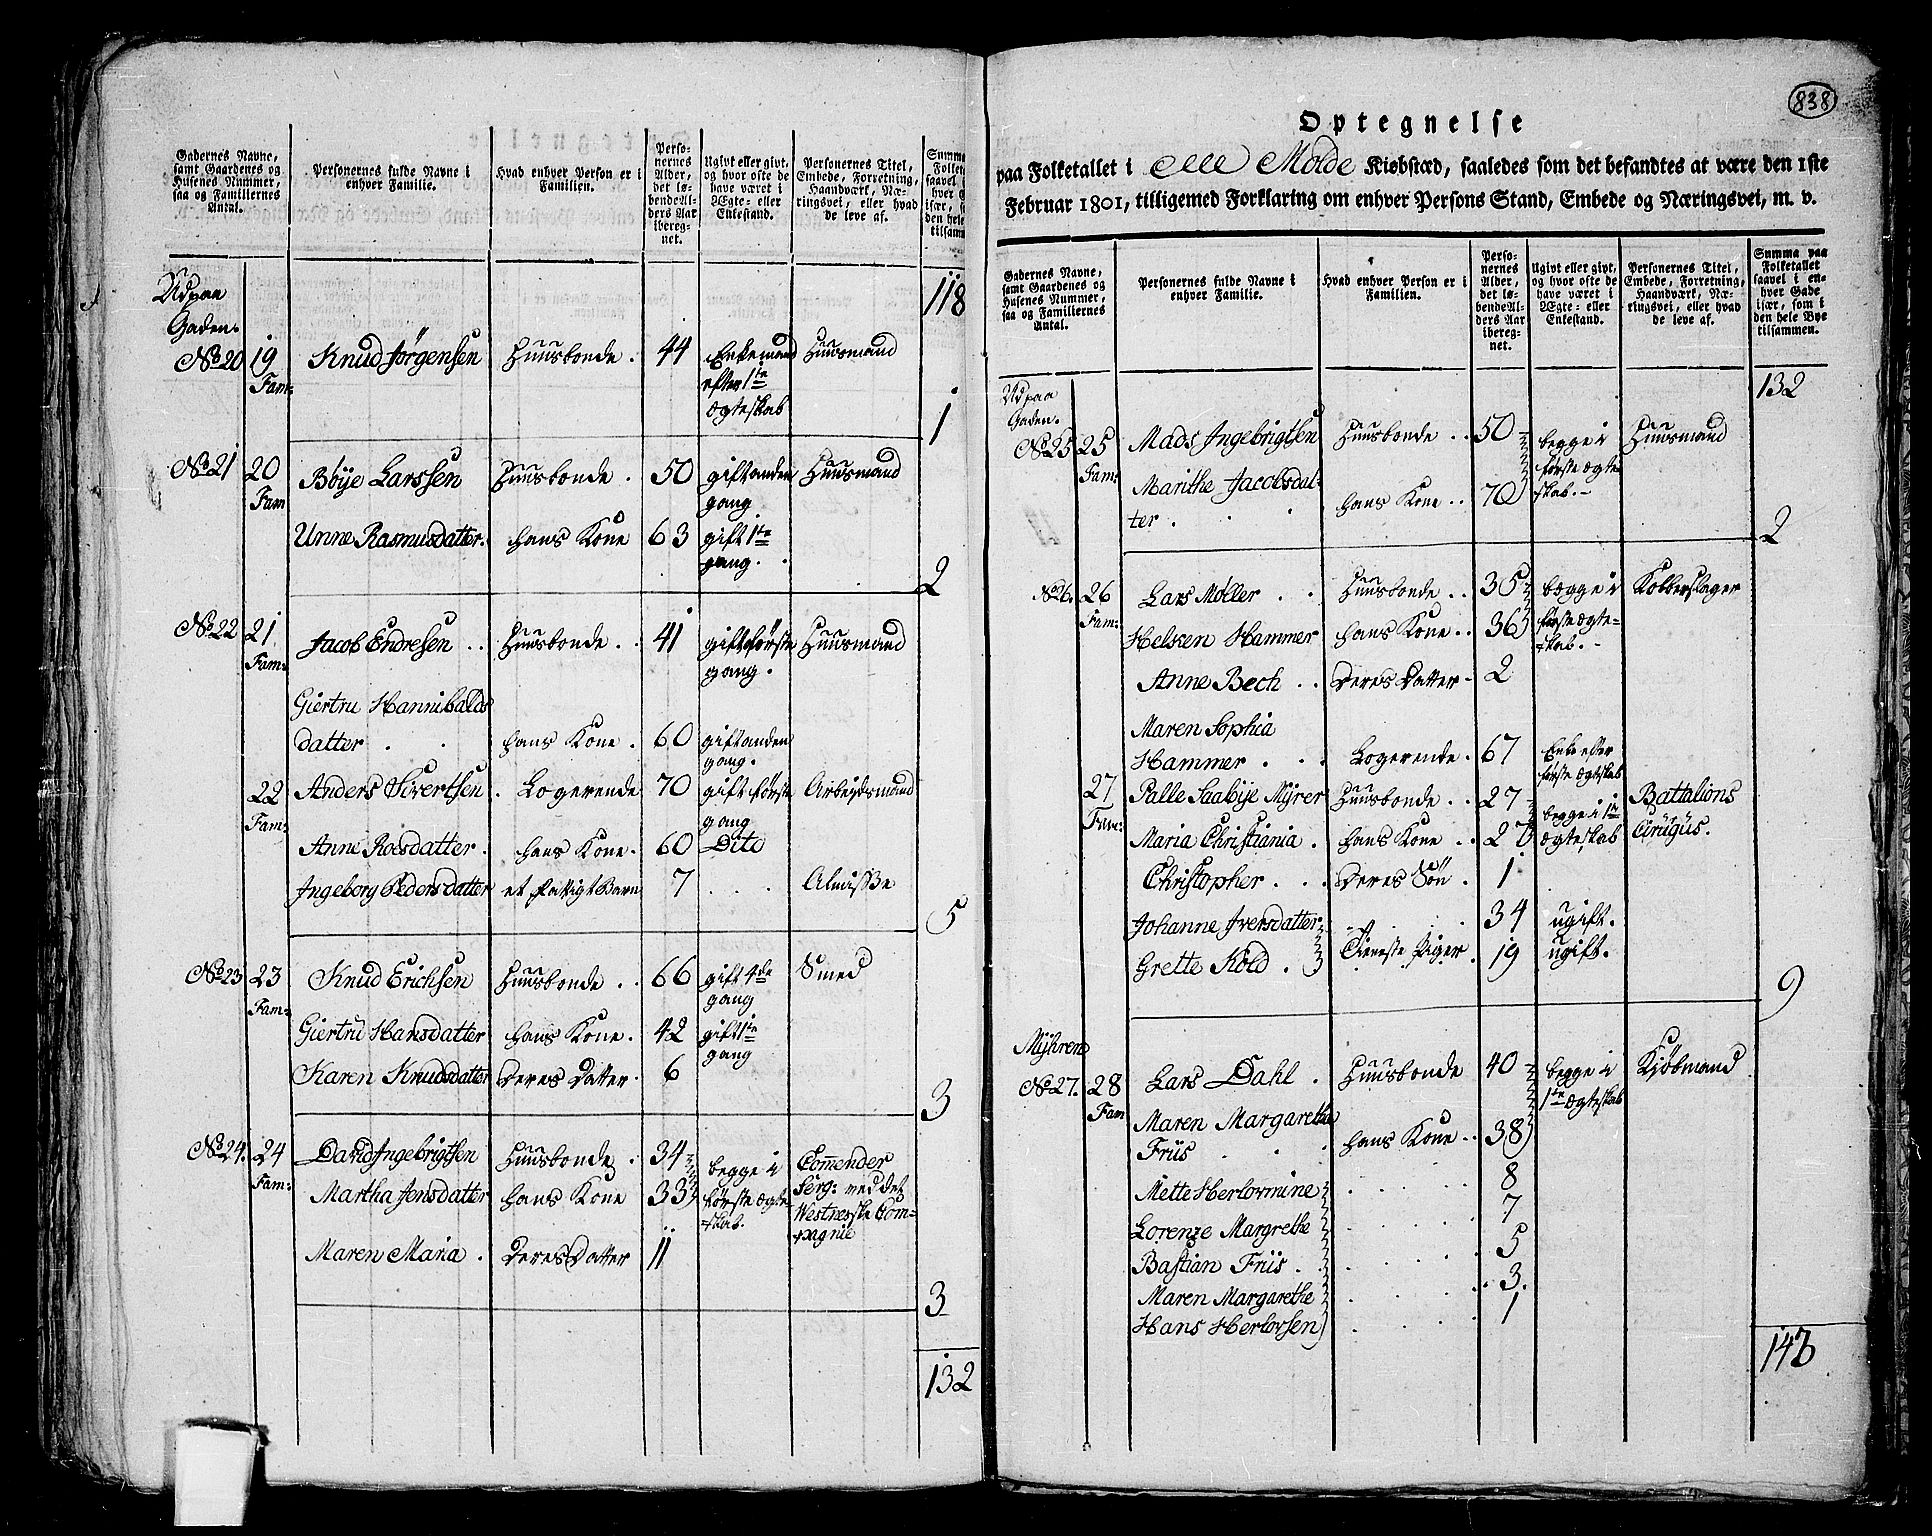 Gadernes Navne,
samt Gaardenes og
Husenes Nummer,
saa og Familiernes
Antal.
Personernes fulde Navne i
enhver Familie.
Hvad enhver Person er i
Familien.
Perso-
nernes
Alder,
det lø-
bende Al-
ders Aar
ibereg-
net.
Ugivt eller givt,
og hvor ofte de
have været i
Ægte- eller
Enkestand.
Personernes Titel,
Embede, Forretning,
Haandværk, Næ-
ringsvei, eller hvad
de leve af.
Summa
Folket
saavel i
hver G
især, s
den hele
tilsamm
Udpaa
Gaden.
118
No 20 19 Fam: Knud Jørgensen Huusbonde . 44 Enkemand Huusmand
efter 1te
Ægteskab
1
No 21 20 Fam Bøye Larssen Huusbonde . 50 gift anden Huusmand
gang
Unne Rasmusdatter. hans Kone 63 gift 1te
gang .
2
No 22 21 Fam: Jacob Endresen .. Huusbonde . 41 gift første Huusmand
gang .
Giertru Hannibalds
datter . . hans Kone . 60 gift anden
gang.
22 Fam: Anders Sivertsen . Logerende 70 gift første Arbejdsmand
gang
Anne Roesdatter . hans Kone . 60 Dito
Ingeborg Pedersdatter et fattigt Barn 7 . . Almisse
5
No 23 23 Fam: Knud Erichsen Huusbonde . . 66 gift 4de Smed
gang
Giertru Hansdatter hans Kone . 42 gift 1te
gang
Karen Knudsdatter Deres Datter . 6
3
No 24. 24 Fam: David Ingebrigtsen Huusbonde . 34 begge i Commender
Martha Jensdatter hans Kone 33 første Ægte Serg: ved det
skab. Westnesske Com-
pagnie
Maren Maria . Deres Datter 11
3
132
838
Optegnelse
paa Folketallet i Molde Kiøbstæd, saaledes som det befandtes at være den 1ste
Februar 1801, tilligemed Forklaring om enhver Persons Stand, Embede og Næringsvei, m. v.
Gadernes Navne,
samt Gaardenes og
Husenes Nummer,
saa og Familiernes
Antal.
Personernes fulde Navne i
enhver Familie.
Hvad enhver Person er i
Familien.
Perso-
nernes
Alder,
det lø-
bende Al-
ders Aar
ibereg-
net.
Ugivt eller givt,
og hvor ofte de
have været i
Ægte- eller
Enkestand.
Personernes Titel,
Embede, Forretning,
Haandværk, Næ-
ringsvei, eller hvad
de leve af.
Summa paa
Folketallet
saavel i en-
hver Gade
især, som i
den hele Bye
tilsammen.
Udpaa
Gaden.
132
No 25 25 Fam: Mads Ingebrigtsen Huusbonde .. 50 begge i Huusmand
første Ægte
Marithe Jacobsdat- hans Kone .. 70 skab. -
ter . . .
2
No 26. 26 Fam: Lars Møller . . Huusbonde .. 35 begge i Kobberslager
Helsken Hammer hans Kone .. 36 første Ægte-
skab. -
Anne Bech . . Deres Datter . 2
Maren Sophia
Hammer . . . Logerende . 67 Enke efter
første Ægteskab
27 Fam: Palle Saabye Myrer Huusbonde .. 27 begge i 1te Battalions
Maria Christiania . hans Kone .. 27 Ægteskab Cirugus.
Christopher . . . Deres Søn . 1 .
Johanne Iversdatter . . . 34 ugift.
Grette Kold . Tieneste Piger . 19 ugift.
9
Myhren
No 27. 28 Fam Lars Dahl . Huusbonde 40 begge i Kjøbmand
1te Ægteskab
Maren Margarethe
Friis . . hans Kone .. 38
Mette Herlovmine . . . . 8
Lorenze Margrethe . . . . 7
Bastian Friis . . . . . . 5
Maren Margarethe . . . . 3.
Hans Herlovsen . . . . 1